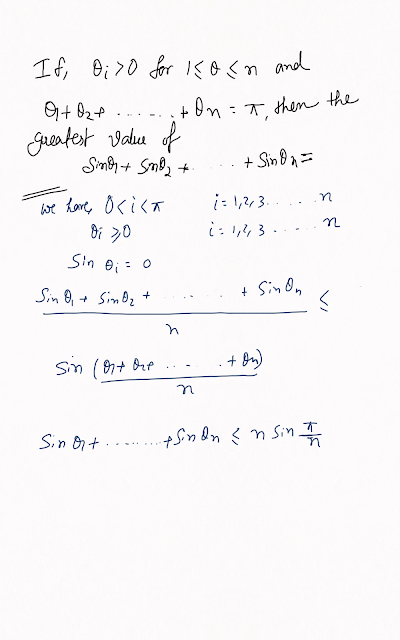 If, θi>0 for 1≤θ≤n and
θ1+θ2+ ....... +θn = π, then the
greatest value of
Sinθ1+ Sinθ2 + ...... + Sinθn=
we have, 0<i<π i=1,2,3.....n
θi ≥0 i=1,2,3.....n
Sin θi = 0
Sin θ1 + Sin θ2 + ....... + Sin θn ≤
n
Sin (θ1+ θ2+ ....... + θn)
n
Sin θ1+.........+Sin θn ≤ n Sin π/n